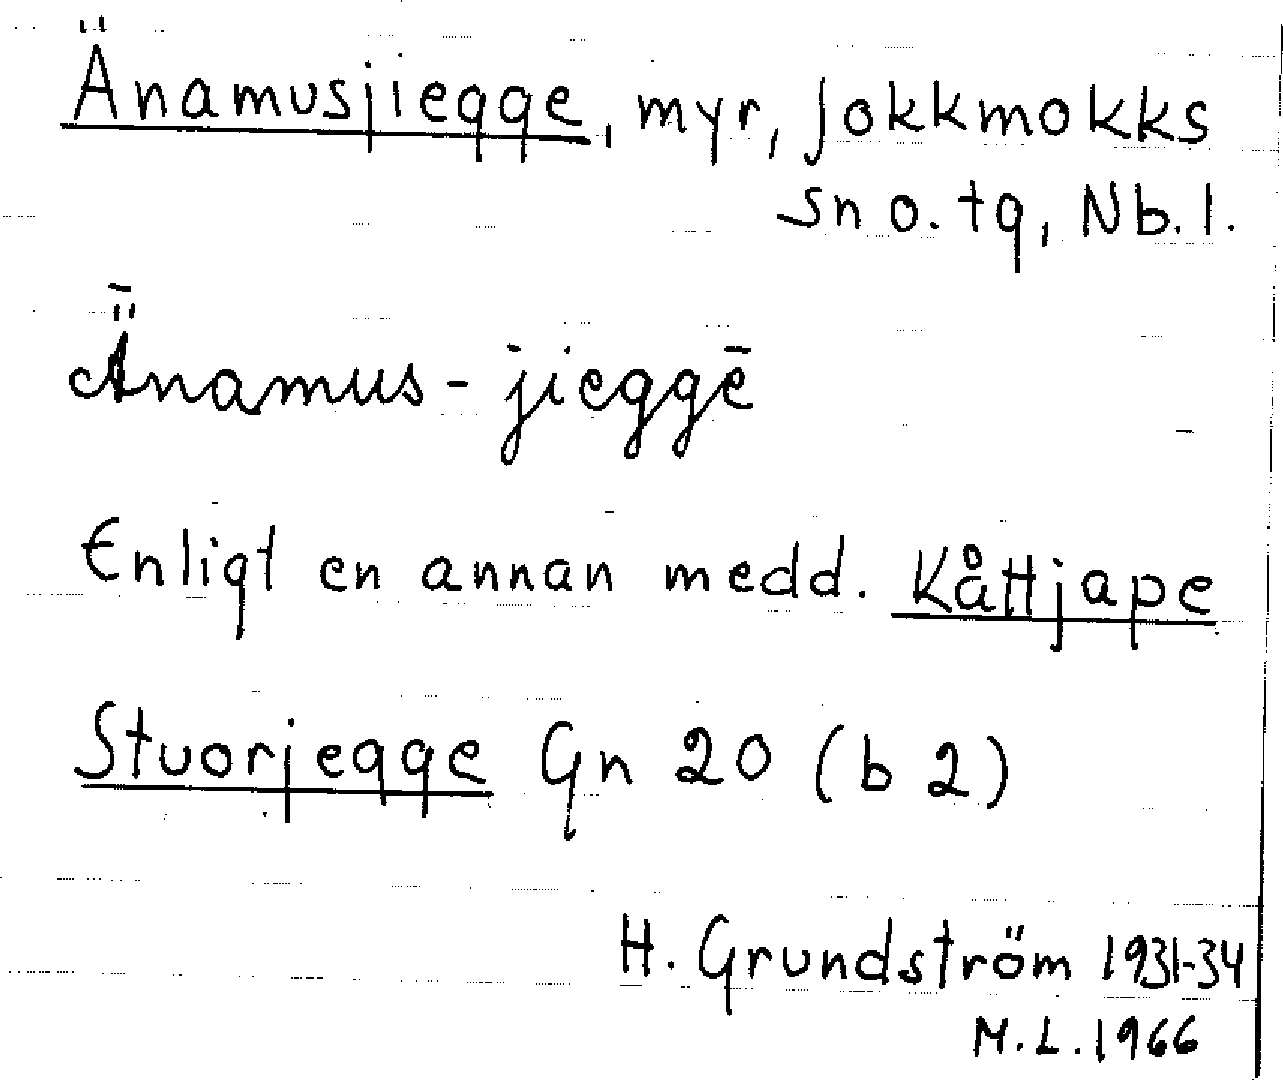 Änamusjiegge, myr, Jokkmokks
sn o. tg, Nb. l.
Ǟnamus-jieggē
Enligt en annan medd. Kåttjape
Stuorjegge Gn 20 (b 2)
H. Grundström 1931-34
M.L. 1966